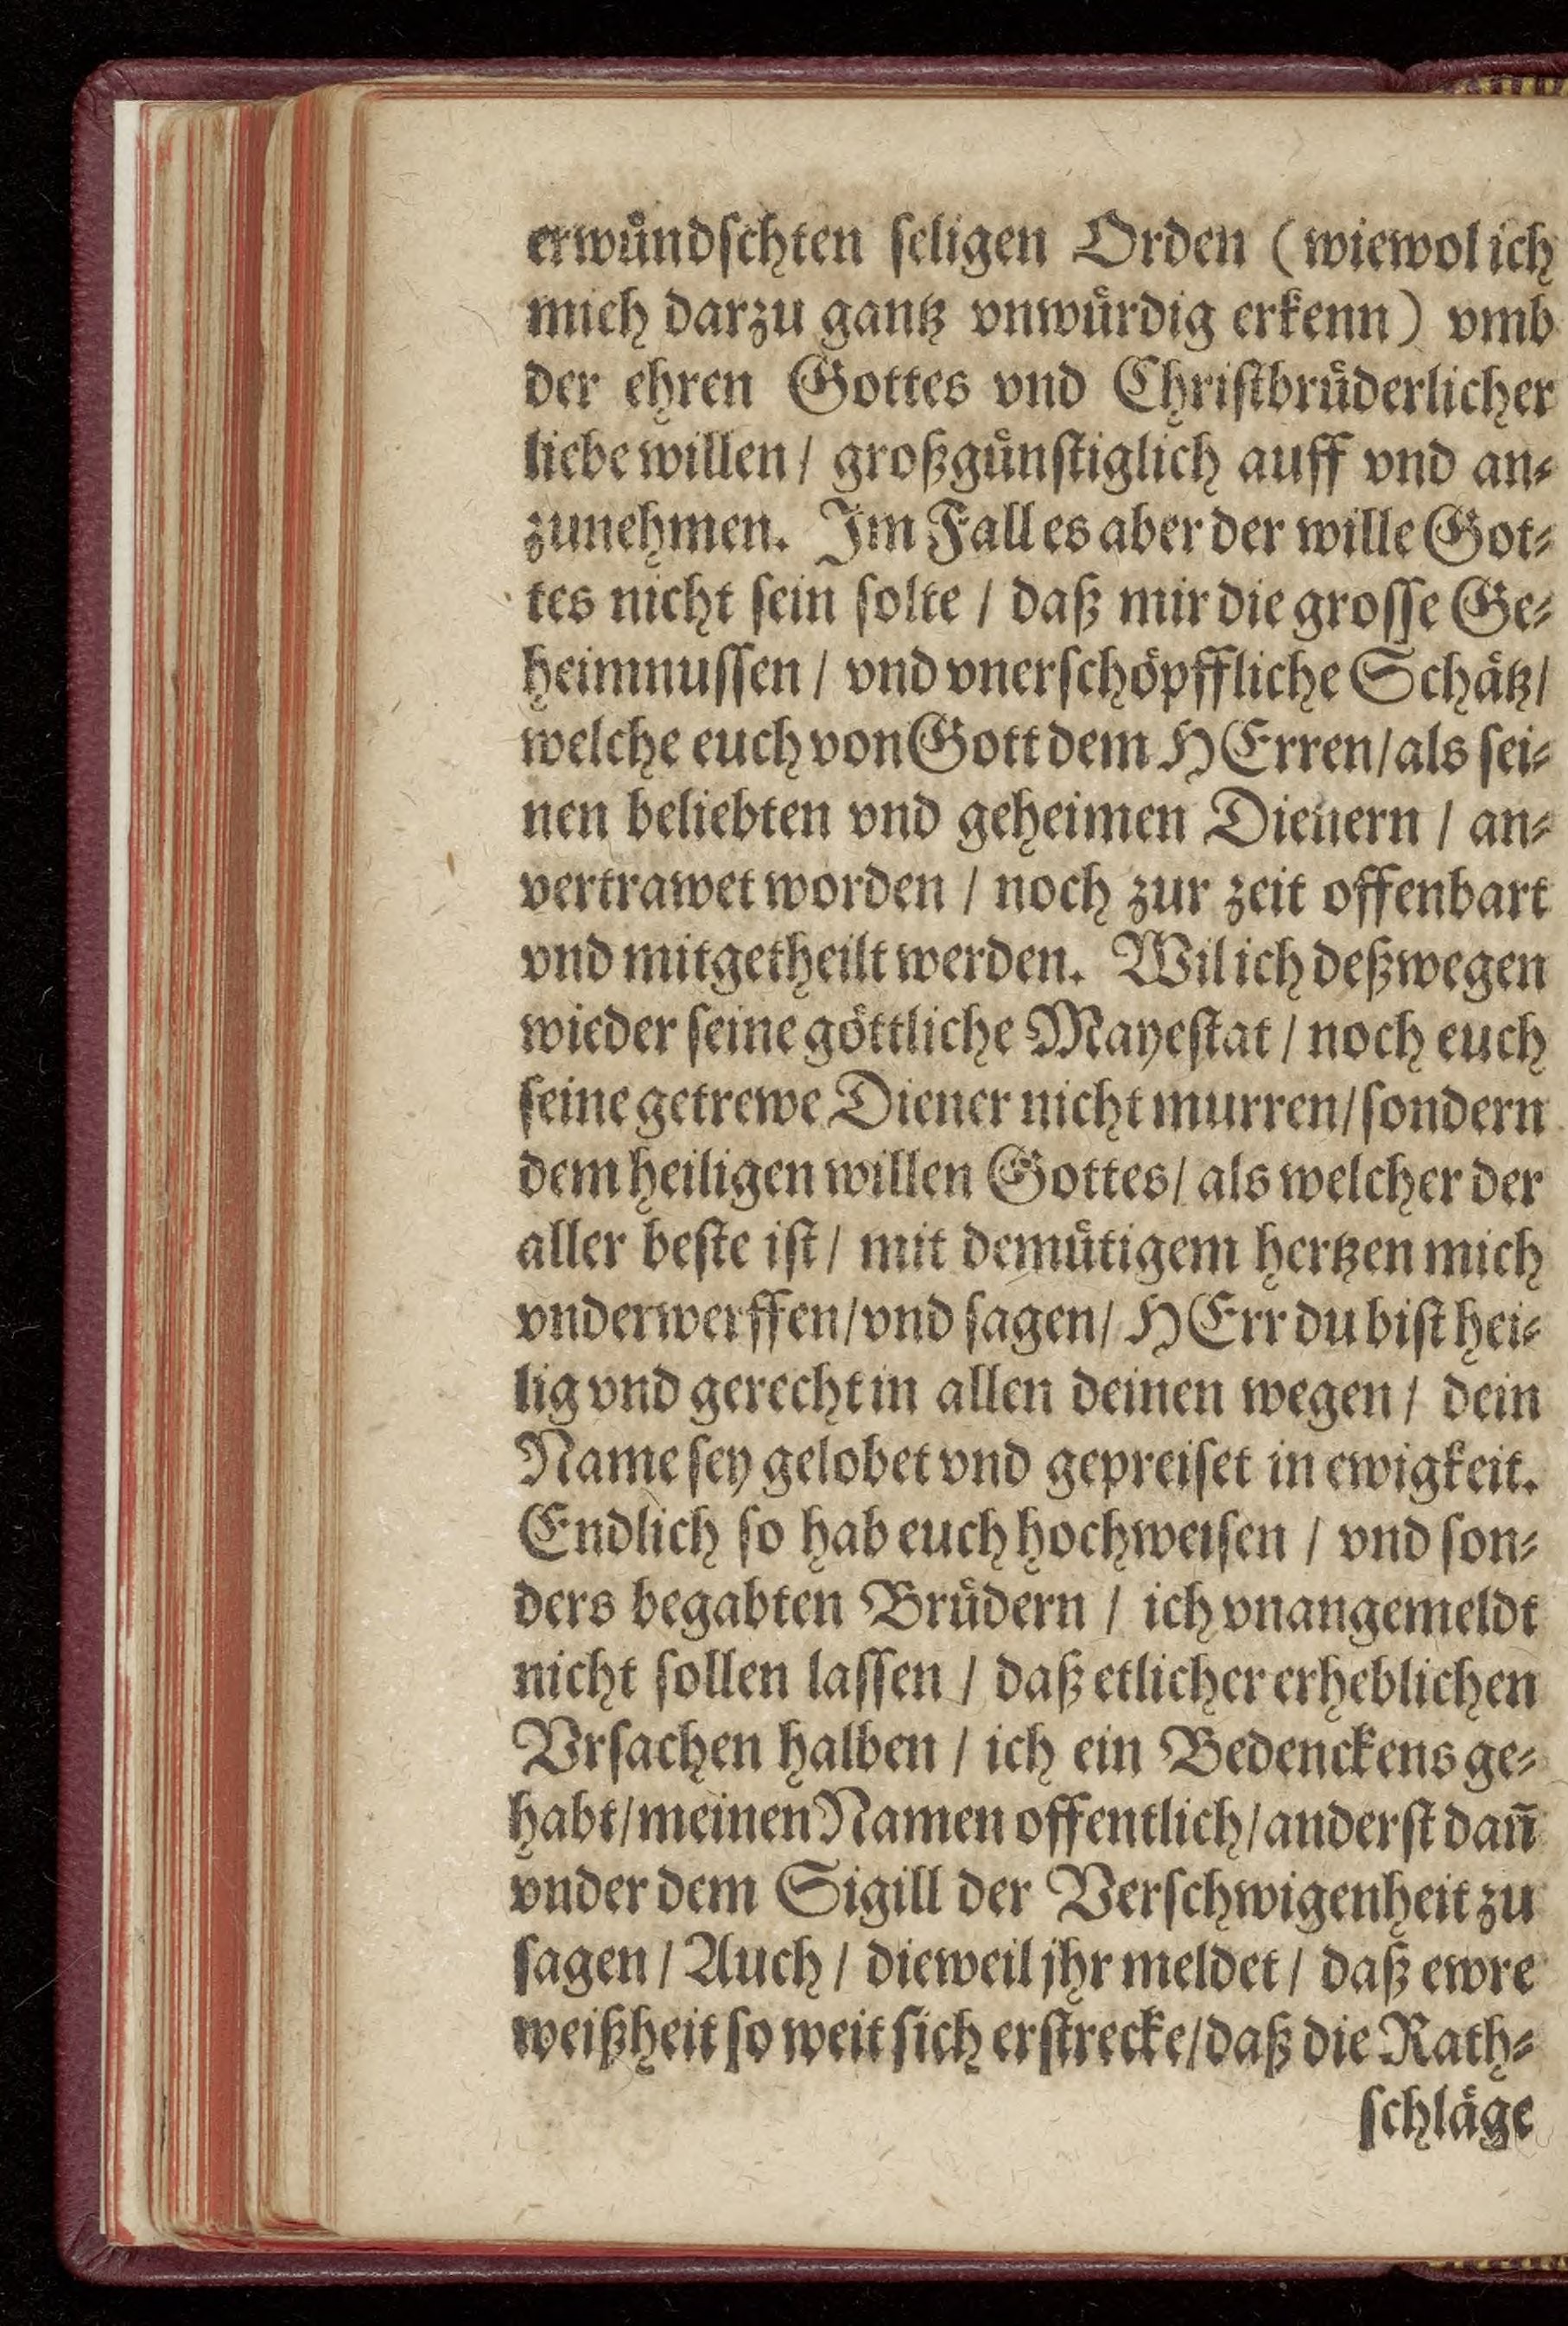 erwuͤndſchten ſeligen Orden (wiewol ich
mich darzu gantz vnwuͤrdig erkenn) vmb
der ehren Gottes vnd Chriſtbruͤderlicher
liebe willen / großguͤnſtiglich auff vnd an⸗
zunehmen. Im Fall es aber der wille Got⸗
tes nicht ſein ſolte / daß mir die groſſe Ge⸗
heimnuſſen / vnd vnerſchoͤpffliche Schaͤtz /
welche euch von Gott dem HErren / als ſei⸗
nen beliebten vnd geheimen Dienern / an⸗
vertrawet worden / noch zur zeit offenbart
vnd mitgetheilt werden. Wil ich deßwegen
wieder ſeine goͤttliche Mayeſtat / noch euch
ſeine getrewe Diener nicht murren / ſondern
dem heiligen willen Gottes / als welcher der
aller beſte iſt / mit demuͤtigem hertzen mich
vnderwerffen / vnd ſagen / HErr du biſt hei⸗
lig vnd gerecht in allen deinen wegen / dein
Name ſey gelobet vnd gepreiſet in ewigkeit.
Endlich ſo hab euch hochweiſen / vnd ſon⸗
ders begabten Bruͤdern / ich vnangemeldt
nicht ſollen laſſen / daß etlicher erheblichen
Vrſachen halben / ich ein Bedenckens ge⸗
habt / meinen Namen offentlich / anderſt dañ
vnder dem Sigill der Verſchwigenheit zu
ſagen / Auch / dieweil jhr meldet / daß ewre
weißheit ſo weit ſich erſtrecke / daß die Rath⸗
ſchlaͤge